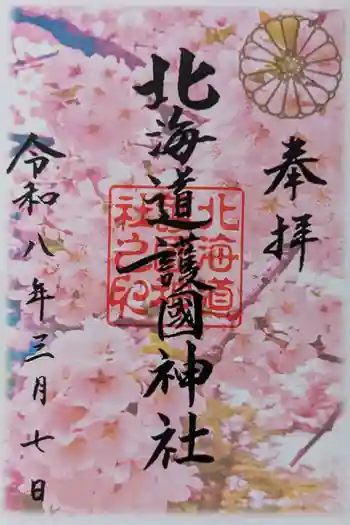 奉拝
北海道護國神社
北海道護國神社之印
令和八年三月七日